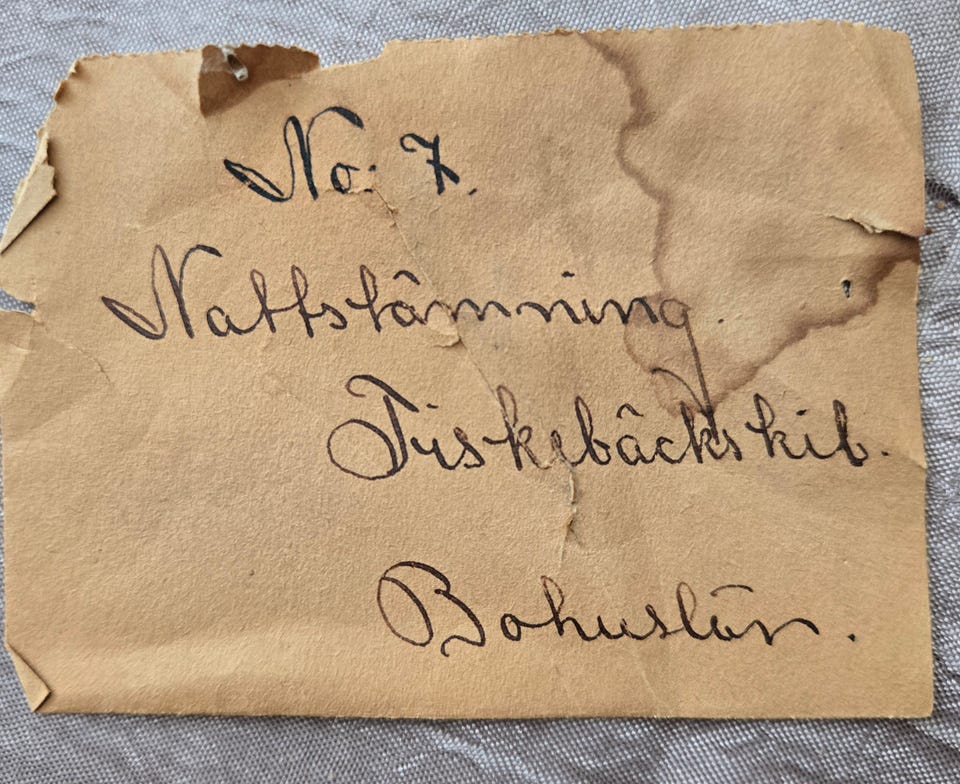 No: 7.
Nattstämning.
Fiskebäckskil.
Bohuslän.